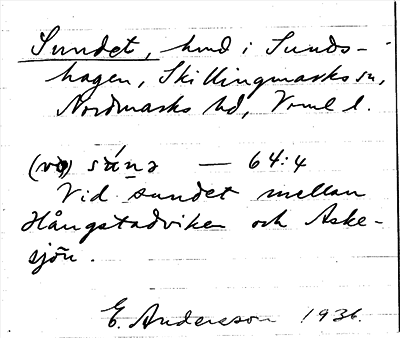 Sundet, hmd i Sunds-
hagen, Skillingmarks sn,
Nordmarks hd, Vrml l.
(və) sánə — 64:4
Vid sundet mellan
Hångstadviken och Aske-
sjön.
E. Andersson 1936.